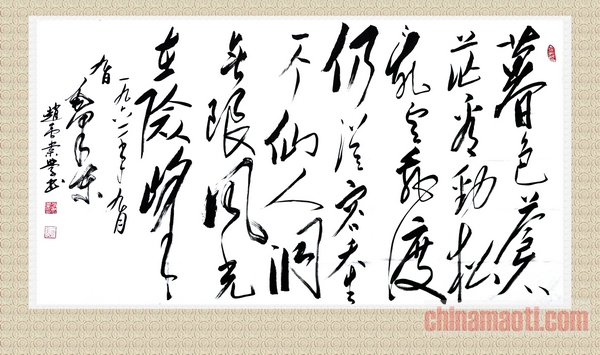 暮色蒼
茫看勁松
亂雲飛渡
仍從容天生
一个仙人洞
無限風光
在險峰
一九六一年九月
九日 毛澤東
chinamaoti.com